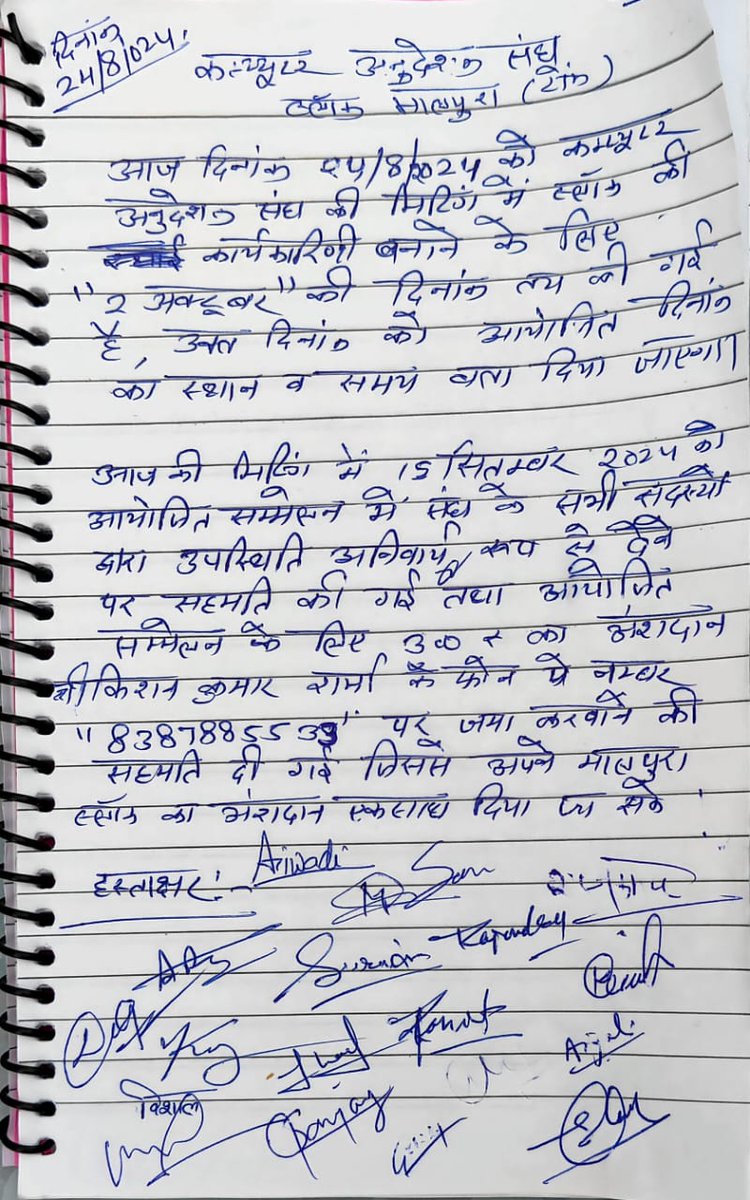 दिनांक
24/8/024.
कम्प्यूटर अनुदेशक संघ
ब्लॉक मालपुरा (टोंक)
आज दिनांक 24/8/2024 को कम्प्यूटर
अनुदेशक संघ की मिटिंग में ब्लॉक की
कार्यकारिणी बनाने के लिए
"2 अक्टूबर" की दिनांक तय की गई
है, उक्त दिनांक को आयोजित दिनांक
का स्थान व समय बता दिया जाएगा।
आज की मिटिंग में 15 सितम्बर 2024 को
आयोजित सम्मेलन में संघ के सभी सदस्यों
द्वारा उपस्थिति अनिवार्य रूप से देने
पर सहमति की गई तथा आयोजित
सम्मेलन के लिए 300 ₹ का अंशदान
श्री किशन कुमार शर्मा के फोन पे नम्बर
"8387885533" पर जमा करवाने की
सहमति दी गई जिससे अपने मालपुरा
ब्लॉक का अंशदान एकसाथ दिया जा सके
हस्ताक्षर:-
विशाल
Sanjay
Anjali